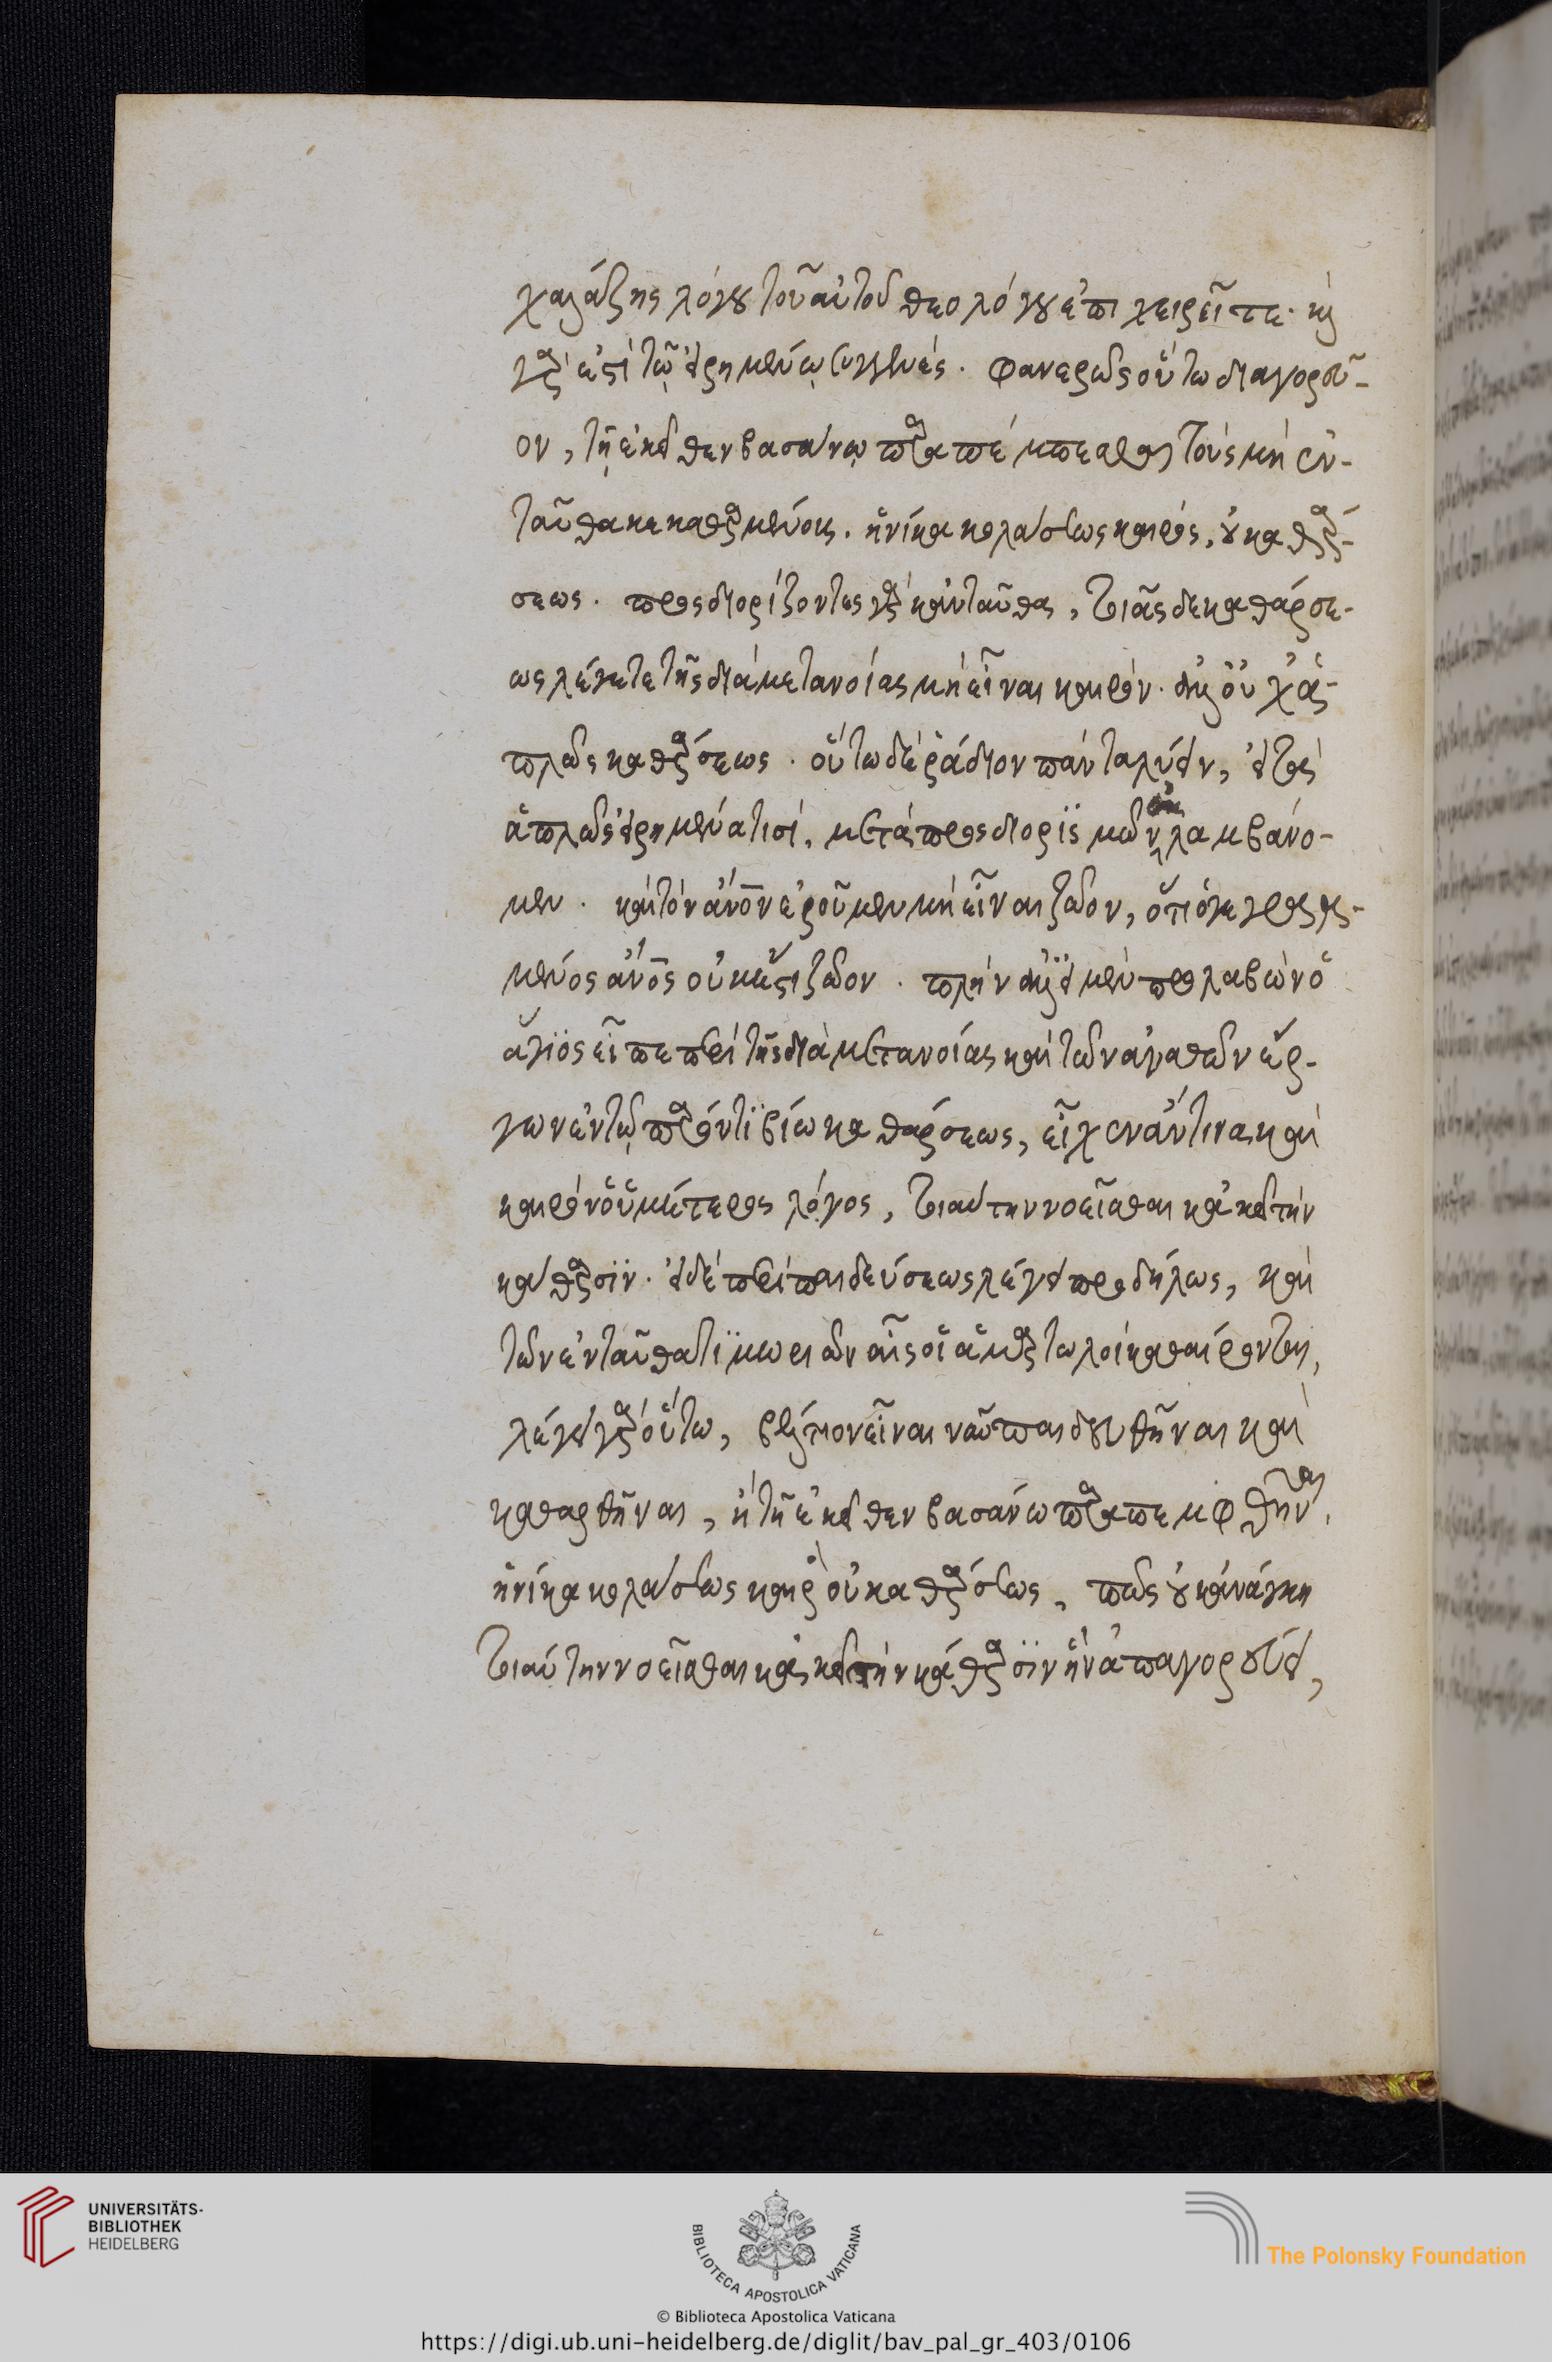 χαλάζης λόγου τοῦ αὐτοῦ θεολόγου ἐπιχειρεῖτε· καὶ
γάρ ἐστι τῷ εἰρημένῳ συγγενές. φανερῶς οὕτω διαγορεῦ-
ον, τῇ ἐκεῖθεν βασάνῳ παραπέμπεσθαι τοὺς μὴ ἐν-
ταῦθα κεκαθαρμένους. ἡνίκα κολάσεως καιρὸς, οὐ καθάρ-
σεως. προσδιορίζοντες γὰρ κἀνταῦθα, τοιᾶσδε καθάρσε-
ως λέγετε τῆς διὰ μετανοίας μὴ εἶναι καιρόν. ἀλλ' οὐχ ἁ-
πλῶς καθάρσεως. οὕτω δὲ ῥάδιον πάντα λύειν, εἰ τὰ
ἁπλῶς εἰρημένα τισί, μετὰ προσδιορισμῶν ἐκλαμβάνο-
μεν. καὶ τὸν ἄνον ἐροῦμεν μὴ εἶναι ζῶον, ὅτι ὅγε γεγραμ-
μένος ἄνος οὐκ ἔστι ζῶον. πλὴν ἀλλ' εἰ μὲν προλαβὼν ὁ
ἅγιος εἶπε περὶ τῆς διὰ μετανοίας καὶ τῶν ἀγαθῶν ἔρ-
γων ἐν τῷ παρόντι βίῳ καθάρσεως, εἶχεν ἄν τινα καὶ
καιρὸν ὁ ὑμέτερος λόγος, τοιαύτην νοεῖσθαι κἀκεῖ τὴν
κάθαρσιν. εἰ δὲ περὶ παιδεύσεως λέγει προδήλως, καὶ
τῶν ἐνταῦθα τιμωριῶν αἷς οἱ ἁμαρτωλοὶ καθαίρονται,
λέγει γὰρ οὕτω, βέλτιον εἶναι νῦν παιδευθῆναι καὶ
καθαρθῆναι, ἢ τῇ ἐκεῖθεν βασάνω παραπεμφθῆναι,
ἡνίκα κολάσεως καιρὸς οὐ καθάρσεως, πῶς οὐκ ἀνάγκη
τοιαύτην νοεῖσθαι κἀκεῖ τὴν κάθαρσιν ἣν ἀπαγορεύει,
UNIVERSITÄTS-
BIBLIOTHEK
HEIDELBERG
BIBLIOTECA APOSTOLICA VATICANA
The Polonsky Foundation
© Biblioteca Apostolica Vaticana
https://digi.ub.uni-heidelberg.de/diglit/bav_pal_gr_403/0106